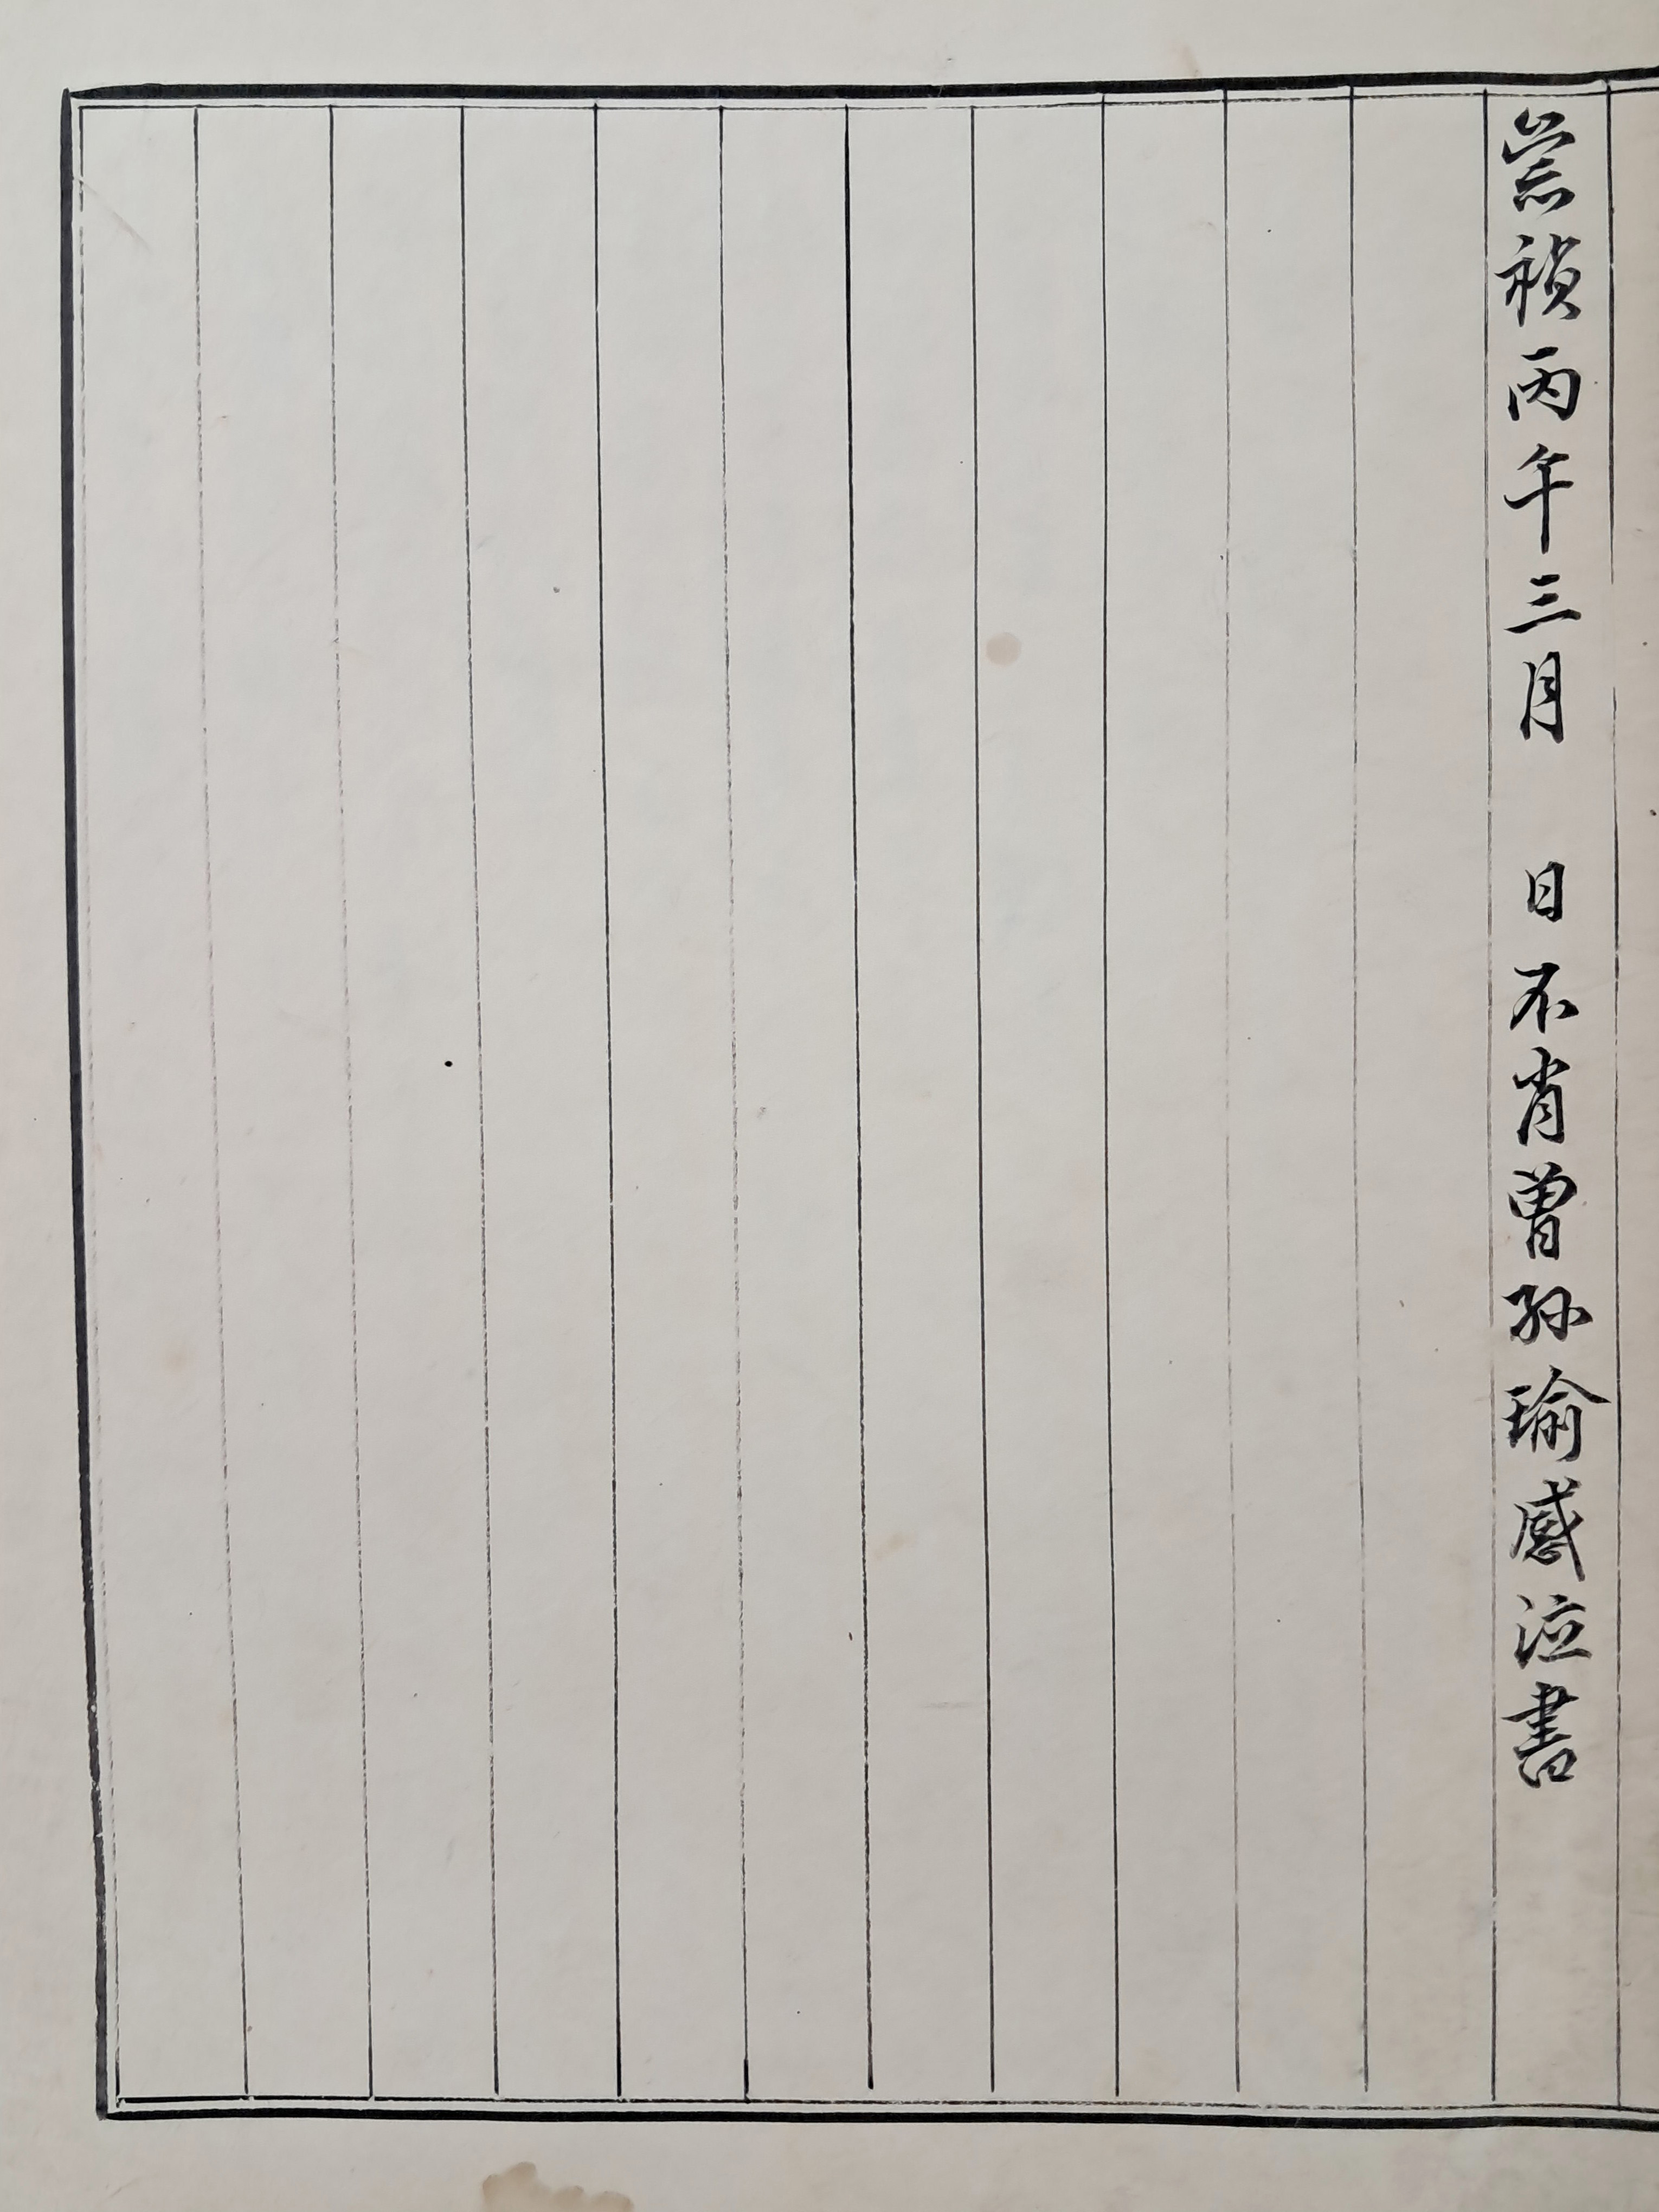 崇禎丙午三月　日不肖曾孫瑜感泣書